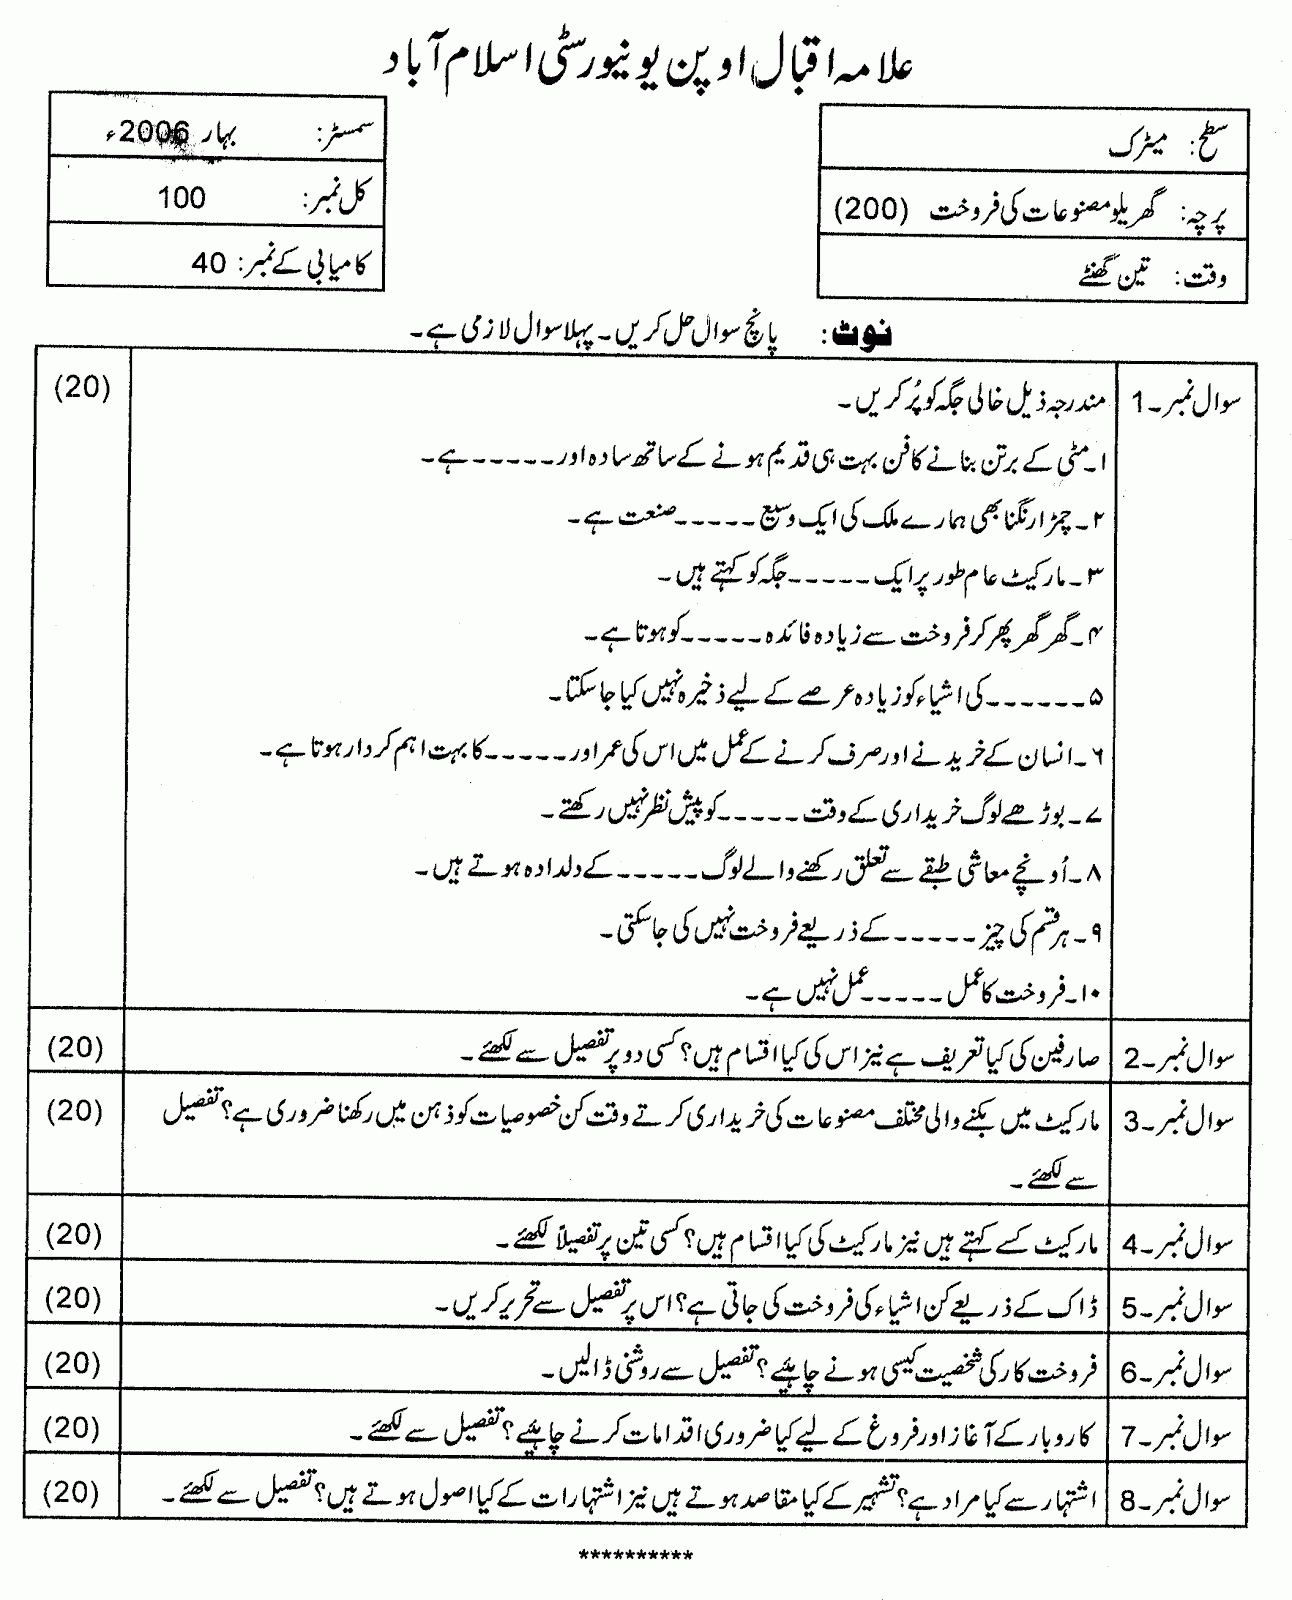 علامہ اقبال اوپن یونیورسٹی اسلام آباد
سطح: میٹرک
پرچہ: گھریلو مصنوعات کی فروخت (200)
وقت: تین گھنٹے
سمسٹر: بہار 2006ء
کل نمبر: 100
کامیابی کے نمبر: 40
نوٹ: پانچ سوال حل کریں۔ پہلا سوال لازمی ہے۔
سوال نمبر۔1 مندرجہ ذیل خالی جگہ کو پُر کریں۔ (20)
۱۔مٹی کے برتن بنانے کا فن بہت ہی قدیم ہونے کے ساتھ سادہ اور-----ہے۔
۲۔چمڑا رنگنا بھی ہمارے ملک کی ایک وسیع-----صنعت ہے۔
۳۔مارکیٹ عام طور پر ایک-----جگہ کو کہتے ہیں۔
۴۔گھر گھر پھر کر فروخت سے زیادہ فائدہ-----کو ہوتا ہے۔
۵۔-----کی اشیاء کو زیادہ عرصے کے لیے ذخیرہ نہیں کیا جا سکتا۔
۶۔انسان کے خریدنے اور صرف کرنے کے عمل میں اس کی عمر اور-----کا بہت اہم کردار ہوتا ہے۔
۷۔بوڑھے لوگ خریداری کے وقت-----کو پیش نظر نہیں رکھتے۔
۸۔اُونچے معاشی طبقے سے تعلق رکھنے والے لوگ-----کے دلدادہ ہوتے ہیں۔
۹۔ہر قسم کی چیز-----کے ذریعے فروخت نہیں کی جا سکتی۔
۱۰۔فروخت کا عمل-----عمل نہیں ہے۔
سوال نمبر۔2 صارفین کی کیا تعریف ہے نیز اس کی کیا اقسام ہیں؟ کسی دو پر تفصیل سے لکھئے۔ (20)
سوال نمبر۔3 مارکیٹ میں بکنے والی مختلف مصنوعات کی خریداری کرتے وقت کن خصوصیات کو ذہن میں رکھنا ضروری ہے؟ تفصیل (20)
سے لکھئے۔
سوال نمبر۔4 مارکیٹ کسے کہتے ہیں نیز مارکیٹ کی کیا اقسام ہیں؟ کسی تین پر تفصیلاً لکھئے۔ (20)
سوال نمبر۔5 ڈاک کے ذریعے کن اشیاء کی فروخت کی جاتی ہے؟ اس پر تفصیل سے تحریر کریں۔ (20)
سوال نمبر۔6 فروخت کار کی شخصیت کیسی ہونے چاہئیے؟ تفصیل سے روشنی ڈالیں۔ (20)
سوال نمبر۔7 کاروبار کے آغاز اور فروغ کے لیے کیا ضروری اقدامات کرنے چاہئیے؟ تفصیل سے لکھئے۔ (20)
سوال نمبر۔8 اشتہار سے کیا مراد ہے؟ تشہیر کے کیا مقاصد ہوتے ہیں نیز اشتہارات کے کیا اصول ہوتے ہیں؟ تفصیل سے لکھئے۔ (20)
**********